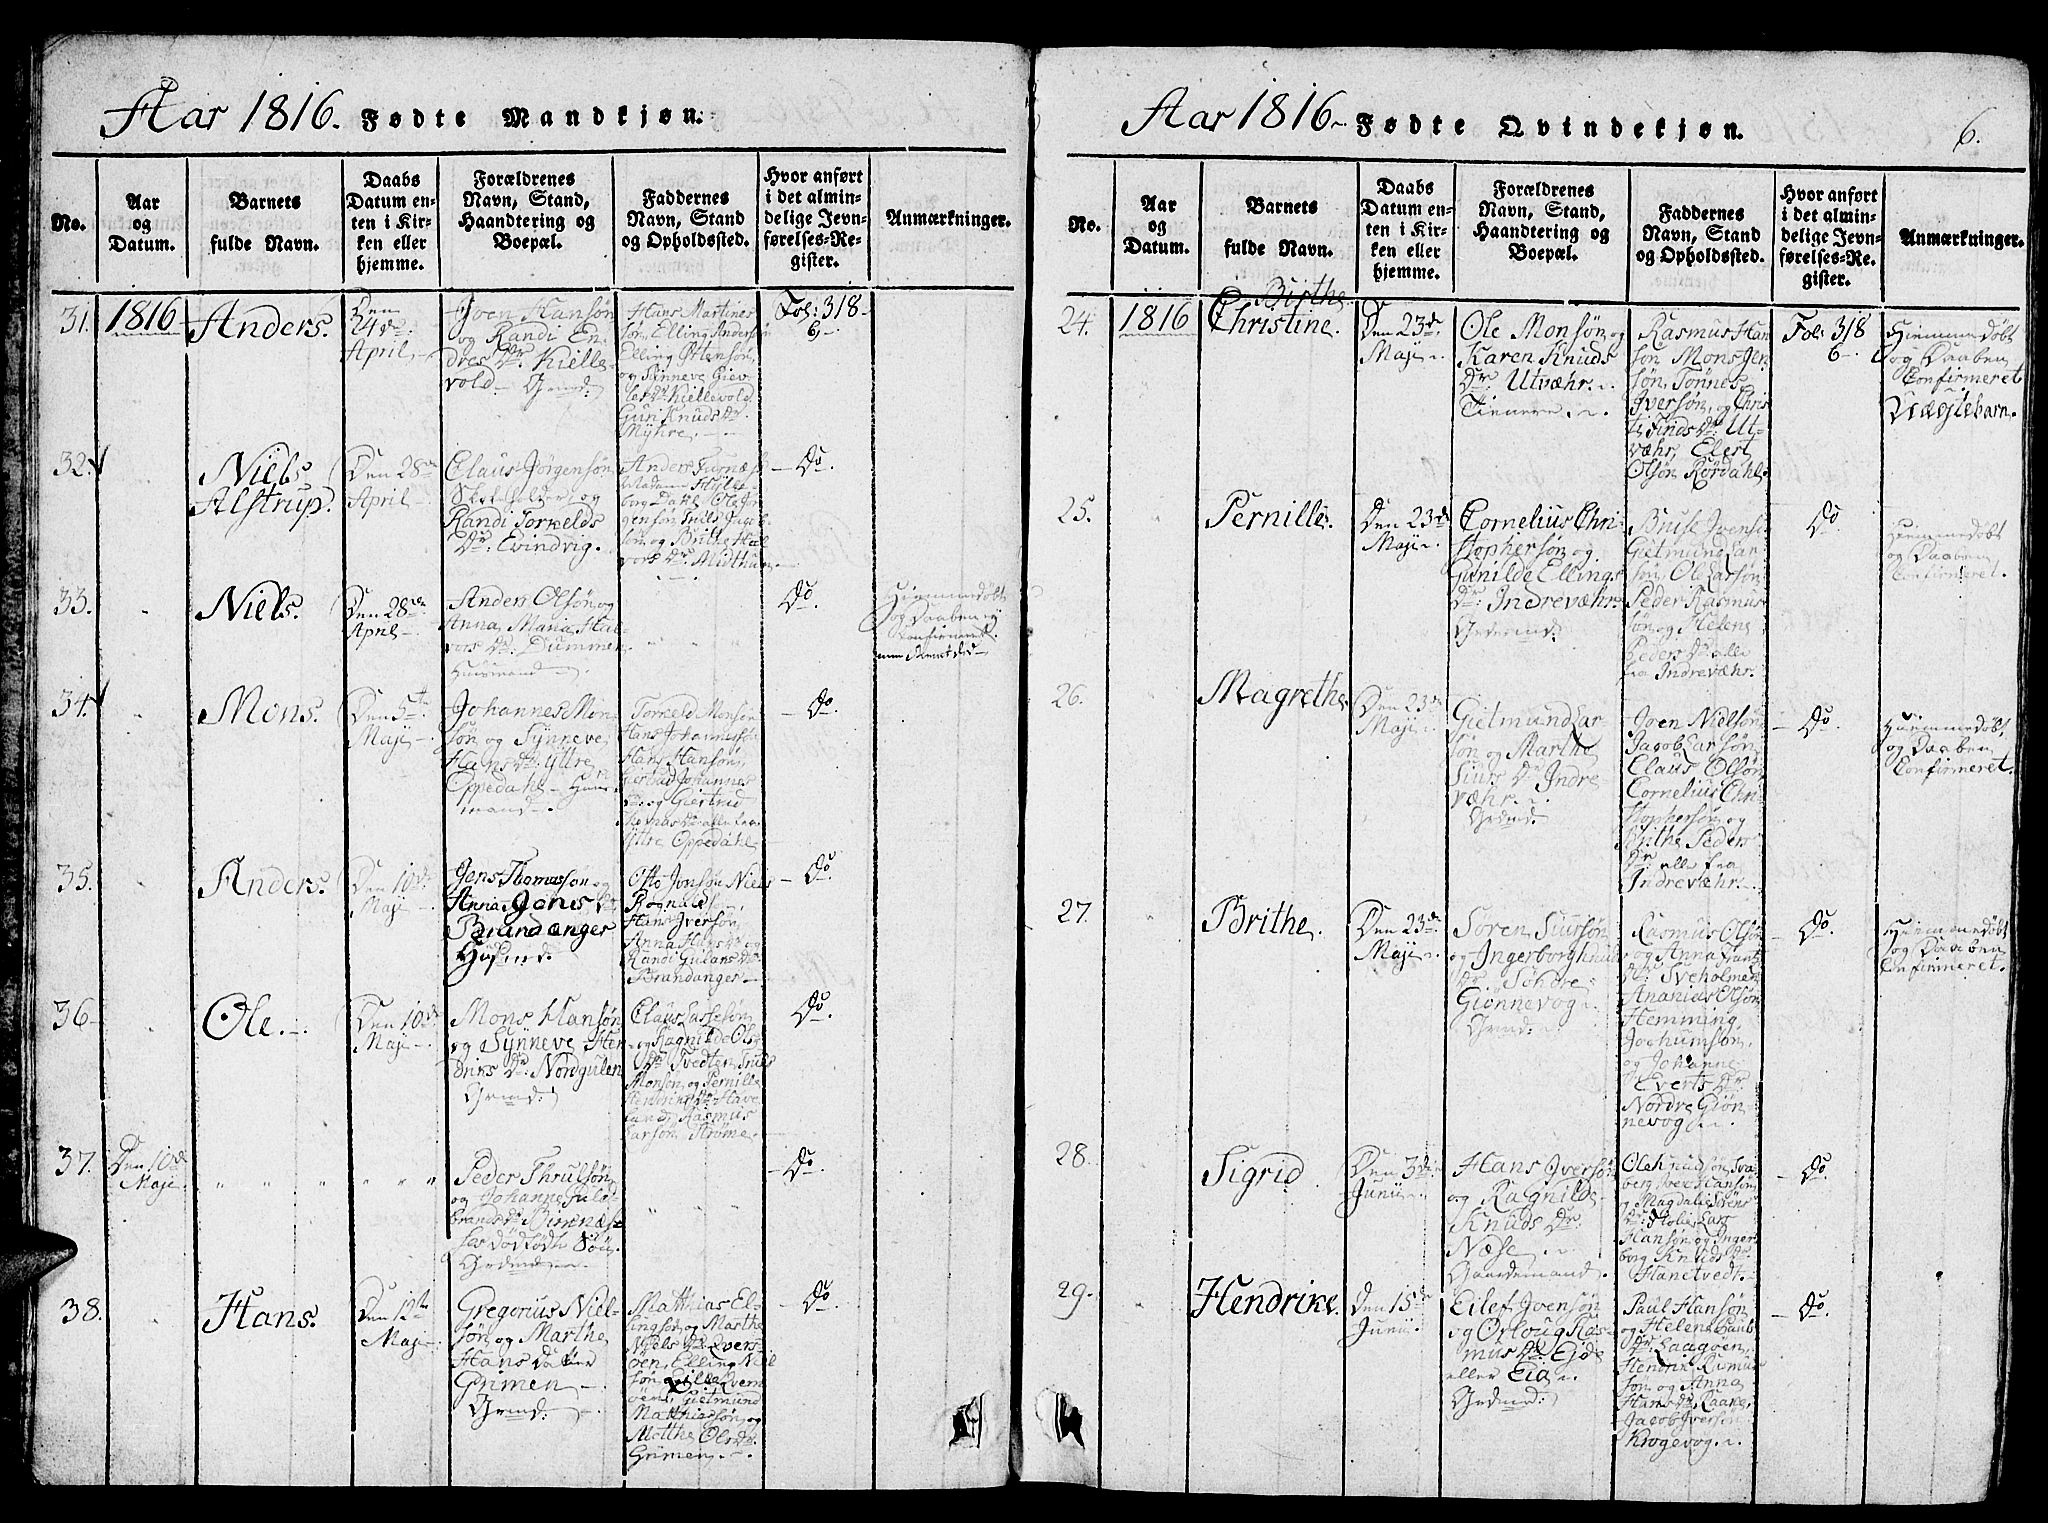 Aar 1816. Fødte Mandkjøn.
No.
Aar
og
Datum.
Barnets
fulde Navn.
Daabs
Datum en-
ten i Kir-
ken eller
hjemme.
Forældrenes
Navn, Stand,
Haandtering og
Boepæl.
Faddernes
Navn, Stand
og Opholdssted.
Hvor anført
i det almin-
delige Jevn-
førelses-Re-
gister.
Anmærkninger.
31.
1816
Anders.
Den
24de
April
Joen Hansøn
og Randi En-
dres Dr. Kielle-
vold Grmd:
Hans Martines
søn, Elling Anders
Elling Ottensøn,
og Sinneve Giev
les Dr Kiellevold
Guri Knuds Dr
Myhre.
Fol: 318
6
32.
Niels
Alstrup.
Den 28de
April
Claus Jørgensøn
Skoleholder og
Randi Torkelds
Dr: Evindvig.
Anders Furnæs
Madme Hylle
borg Dahl, Ole Jør
gensøn, Niels Jacob
søn og Brithe Hal
vors Dr Midthun
Do
33.
Niels.
Den 28de
April
Anders Olsøn og
Anna Maria Hal-
vors Dr. Dummen
Huusmand
Do.
Hiemmedøbt
og Daaben ej
Confirmeret
34.
Mons.
Den 5te
Maji
Johannes Mon-
søn og Synneve
Hans Dr. Yttre
Oppedahl Huus-
mand
Torkeld Monsøn
Hans Johannessøn
Hans Hansøn,
Johannes
Dr. og Giertrud
Thomas Dr. alle fra
Yttre Oppedahl
Do.
35.
Anders.
Den 10de
Maji
Jens Thomassøn og
Anna Jonis Dr
Brandanger
Husmd.
Otto Jonsøn Niels
Hans Iversøn,
Anna Hans Dr og
Randi Gulans Dr
Brandanger
Do.
36
Ole.
Den 10de
Maji
Mons Hansøn
og Synneve Hen
driks Dr. Nordgulen
Grmd:
Claus Lassesøn
og Ragnilde Ols
Dr Tvedten
Monsøn, og Pernille
Hendriks Dr Have
land, Rasmus
Larsøn Strøme.
Do
37.
Den 10de
Maji
Peder Thrulsøn
og Johanne Gule
brands Dr Birknæs
dødfødt Søn.
Grdmd
Do.
38.
Hans.
Den 12te
Maji
Gregorius Niel-
søn og Marthe
Hans Datter
Grimen
Grmd:
Matthias El-
lingsøn og Marthe
Niels Dr Evers-
øen, Elling Niel
søn
øen, Gietmund
Matthiassøn og
Matthe Ols Dr
Grimen
Do.
Aar 1816 Fødte Qvindekjøn.
6.
No.
Aar
og
Datum.
Barnets
fulde Navn.
Daabs
Datum en-
ten i Kir-
ken eller
hjemme.
Forældrenes
Navn, Stand,
Haandtering og
Boepæl.
Faddernes
Navn, Stand
og Opholdssted.
Hvor anført
i det almin-
delige Jevn-
førelses-Re-
gister.
Anmærkninger.
24.
1816
Birthe
Christine.
Den 23de
Maji
Ole Monsøn og
Karen Knuds
Dr. Utvæhr.
Tienere
Rasmus Han
søn Mons Jen
søn, Tønnes
Iversøn, og Chris
ti Finds Dr. Ut-
væhr, Elert
Olsøn Rørdahl.
Fol: 318
6
Hiemmedøbt
og Daaben
Confirmeret
Uægtebarn.
25.
Pernille.
Den 23de
Maji
Cornelius Chri-
stophersøn og
Gunilde Ellings
Dr. Indrevæhr.
Grdmd:
Bruse Ivensø
Gietmund Lar
søn, Ole Larsøn
Peder Rasmus
søn og Helene
Peders Dr alle
fra Indrevæhr.
Do
Hiemmedøbt
og Daaben
Confirmeret.
26.
Magrethe
Den 23de
Maji
Gietmund Lar
søn og Marthe
Siurs Dr Indre
væhr.
Grdmd:
Joen Nielsøn
Jacob Larsøn
Claus Olsøn
Cornelius Chri-
stophersøn og
Brithe Peders
Dr. alle fra
Indrevæhr.
Do.
Hiemmedøbt,
og Daaben
Confirmeret.
27.
Brithe.
Den 23de
Maji
Søren Siursøn
og Ingerborg Knuds
Dr. Søndre
Giønnevog
Grmd:
Rasmus Olsøn
og Anna
Dr. Sveholmen
Ananias Olsøn
Hemming
Jochumsøn,
og Johanne
Everts Dr
Nordre Giøn-
nevog
Do.
Hiemmedøbt
og Daaben
Confirmeret.
28.
Sigrid
Den 3die
Junii
Hans Iversøn
og Ragnilde
Knuds Dr.
Næse
Gaardemand.
Ole Knudsøn Sva
berg, Iver Hansøn
og Magdale Sørens
Dr. Lars
Hansøn og Inger
borg Knuds Dr
Hanetvedt.
Do.
29.
Hendrike.
Den 15de
Junii
Eilef Ivensøn
og Orloug Ras-
mus Dr. Ejde
eller Eia
Grdmd:
Paul Hansøn
og Helene Pauls
Dr. Laagøen,
Hendrik Rasmus
søn og Anna
Hans Dr. Kaarøe,
Jacob Iversøn
Krogevog.
Do.